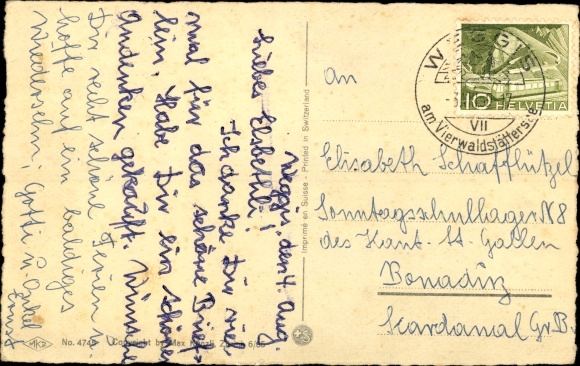 Weggis, den 4. Aug.
Liebes Elsbethli!
Ich danke Dir viel
mal für das schöne Brief-
lein. Habe Dir ein schönes
Andenken gekauft. Wünsche
Dir recht schöne Ferien u.
hoffe auf ein baldiges
Wiedersehn. Gotti u. Onkel
Ernst
An
Elisabeth Schafflützel
Sonntagsschullager N8
des Kant. St. Gallen
Bonaduz
Scardanal Gr. B.
WEGGIS
VII
am Vierwaldstättersee
10 HELVETIA
Imprimé en Suisse - Printed in Switzerland
No. 4746 Copyright by Max Küttel, 6/55